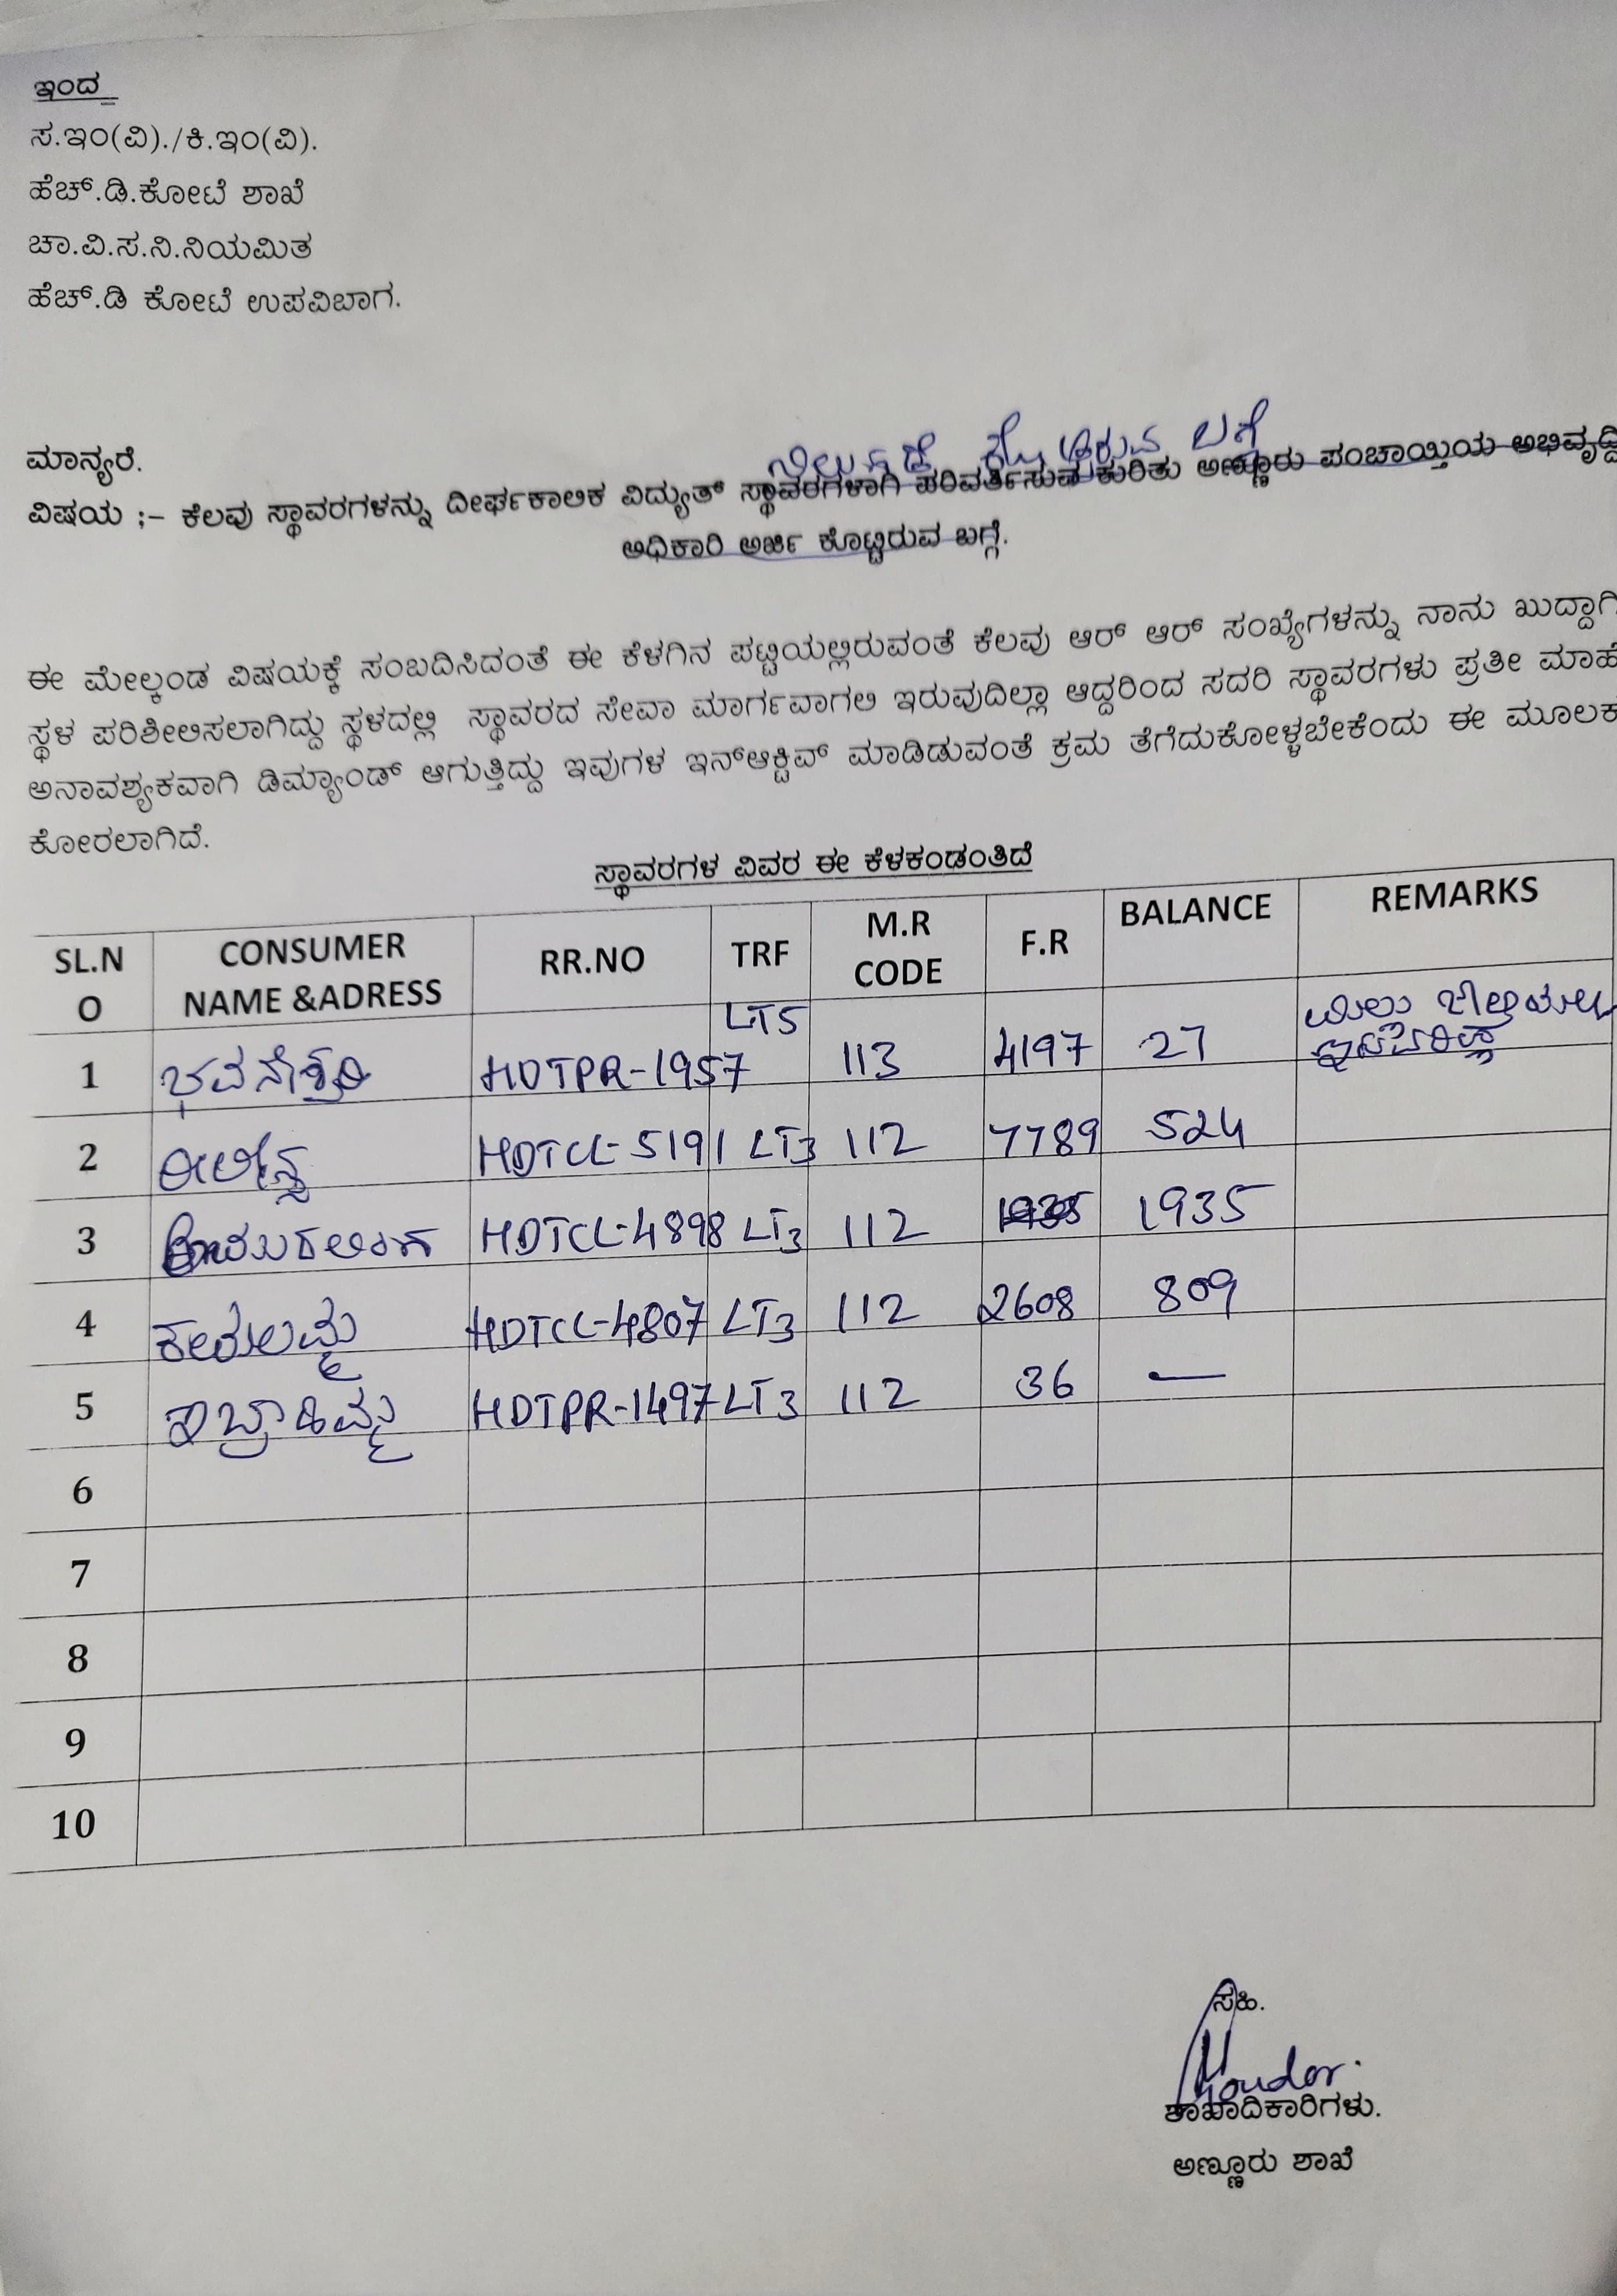 ಇಂದ
ಸ.ಇಂ(ವಿ)./ಕಿ.ಇಂ(ವಿ).
ಹೆಚ್.ಡಿ.ಕೋಟೆ ಶಾಖೆ
ಚಾ.ವಿ.ಸ.ನಿ.ನಿಯಮಿತ
ಹೆಚ್.ಡಿ ಕೋಟೆ ಉಪವಿಬಾಗ.
ಮಾನ್ಯರೆ.
ಬಗ್ಗೆ
ವಿಷಯ ;– ಕೆಲವು ಸ್ಥಾವರಗಳನ್ನು ದೀರ್ಘಕಾಲಿಕ ವಿದ್ಯುತ್ ಸ್ಥಾವರಗಳಾಗಿ ಪರಿವರ್ತಿಸುವ ಕುರಿತು ಅಣ್ಣೂರು ಪಂಚಾಯ್ತಿಯ ಅಭಿವೃದ್ದಿ
ಅಧಿಕಾರಿ ಅರ್ಜಿ ಕೊಟ್ಟಿರುವ ಬಗ್ಗೆ.
ಈ ಮೇಲ್ಕಂಡ ವಿಷಯಕ್ಕೆ ಸಂಬದಿಸಿದಂತೆ ಈ ಕೆಳಗಿನ ಪಟ್ಟಿಯಲ್ಲಿರುವಂತೆ ಕೆಲವು ಆರ್ ಆರ್ ಸಂಖ್ಯೆಗಳನ್ನು ನಾನು ಖುದ್ದಾಗಿ
ಸ್ಥಳ ಪರಿಶೀಲಿಸಲಾಗಿದ್ದು ಸ್ಥಳದಲ್ಲಿ ಸ್ಥಾವರದ ಸೇವಾ ಮಾರ್ಗವಾಗಲಿ ಇರುವುದಿಲ್ಲಾ ಆದ್ದರಿಂದ ಸದರಿ ಸ್ಥಾವರಗಳು ಪ್ರತೀ ಮಾಹೆ
ಅನಾವಶ್ಯಕವಾಗಿ ಡಿಮ್ಯಾಂಡ್ ಆಗುತ್ತಿದ್ದು ಇವುಗಳ ಇನ್ಆಕ್ಟಿವ್ ಮಾಡಿಡುವಂತೆ ಕ್ರಮ ತೆಗೆದುಕೋಳ್ಳಬೇಕೆಂದು ಈ ಮೂಲಕ
ಕೋರಲಾಗಿದೆ.
ಸ್ಥಾವರಗಳ ವಿವರ ಈ ಕೆಳಕಂಡಂತಿದೆ
SL.NO CONSUMER NAME &ADRESS RR.NO TRF M.R CODE F.R BALANCE REMARKS
1 HDTPR-1957 LT5 113 4197 27
2 HDTCL-5191 LT3 112 7789 524
3 HDTCL-4898 LT3 112 1935 1935
4 HDTCL-4807 LT3 112 2608 809
5 HDTPR-1497 LT3 112 36 —
6
7
8
9
10
ಸಹಿ.
ಶಾಖಾದಿಕಾರಿಗಳು.
ಅಣ್ಣೂರು ಶಾಖೆ